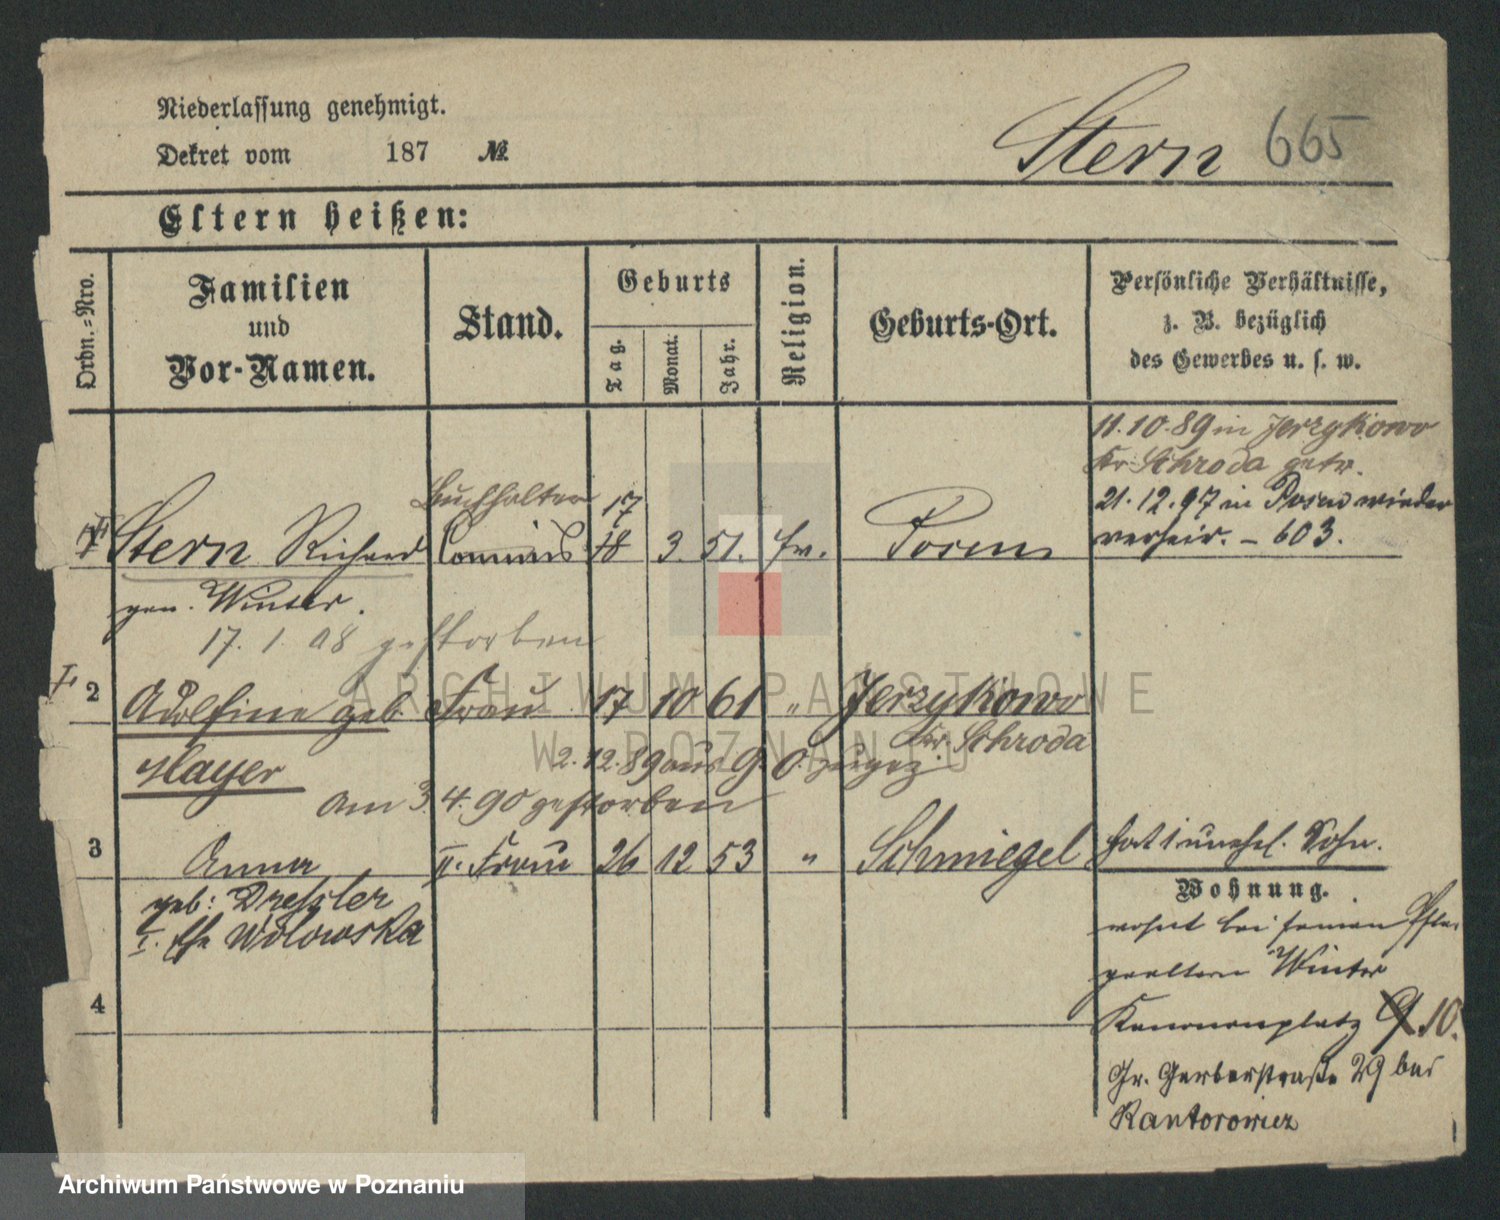 Niederlassung genehmigt.
Dekret vom 187 №
Stern 665
Eltern heißen:
Ordn.-Nro.
Familien
und
Vor-Namen.
Stand.
Geburts
Tag.
Monat.
Jahr.
Religion.
Geburts-Ort.
Persönliche Verhältnisse,
z. B. bezüglich
des Gewerbes u. s. w.
11.10.89 in Jerzykowo
Kr. Schroda getr.
21.12.97 in Posen wieder
verheir. - 603.
Buchhalter 17
Stern Richard Commis 18 3. 51. Posen
gen. Winter.
17. 1. 08 gestorben
2 Adolfine geb Frau 17 10 61 " Jerzykowo
Kr. Schroda
Mayer
2.12.89 aus G. O. zugez.
am 3. 4. 90 gestorben
3 Anna II. Frau 26 12 53 " Schmiegel hat 1 unehl. Sohn.
geb: Dressler
I. Ehe Wolowska
Wohnung.
wohnt bei seinen Pfle-
geeltern Winter
Kanonenplatz 9 10.
4
Gr. Gerberstraße 29 bei
Kantorowicz
ARCHIWUM PAŃSTWOWE
W POZNANIU
Archiwum Państwowe w Poznaniu